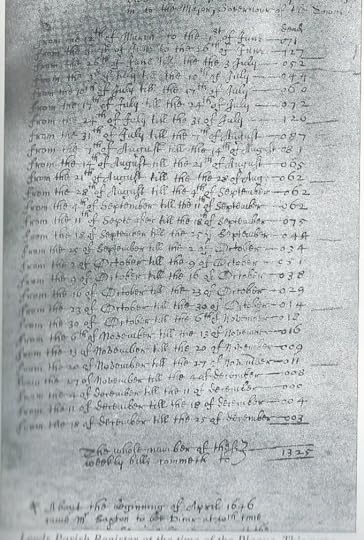 to the Major,
Dead
from the 12th of March to the of June — 071
from the of June to the 26th of June — 117
from the 26th of June till the 3 of July — 052
from the 3 of July till the 10th of July
from the 10th of July till the 17th of July — 060
from the 17th of July till the 24th of July — 072
from the 24th of July till the 31 of July — 126
from the 31th of July till the 7th of August — 087
from the 7th of August till the 14th of August 081
from the 14th of August till the 21th of August — 065
from the 21th of August till the 28 of Aug — 062
from the 28th of August till the 4th of September — 062
from the 4th of September till the 11 of September 062
from the 11th of September till the 18 of September — 075
from the 18 of September till the 25 of September
from the 25 of September till the 2 of October — 034
from the 2 of October till the 9 of October — 051
from the 9 of October till the 16 of October — 038
from the 16 of October till the 23 of October — 029
from the 23 of October till the 30 of October — 014
from the 30 of October till the 6th of November — 018
from the 6th of November till the 13 of November — 016
from the 13 of November till the 20 of November — 009
from the 20 of November till the 27 of November — 011
from the 27 of November till the 4 of december — 008
from the 4 of december till the 11 of december — 000
from the 11 of december till the 18 of december — 004
from the 18 of december till the 25 of december — 003
The whole number of these
weekly bills commeth to 1325
About the beginning of April 1646
came Mr Saxton to be Vicar at
Leeds Parish Register at the time of the